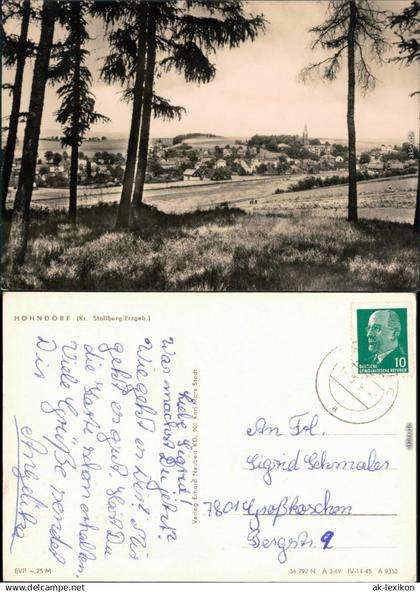 HOHNDORF (Kr. Stollberg/Erzgeb.)
Liebe Sigrid!
Was machst Du jetzt?
Wie geht es Dir? Mir
geht es gut. Hast Du
die Karte schon erhalten.
Viele Grüße sendet
Dir
Angelika
Verlag Erhard Neubert KG, 901 Karl-Marx-Stadt
10
DEUTSCHE DEMOKRATISCHE REPUBLIK
a
An Frl.
Sigrid Schmaler
7801 Großkoschen
Bergstr. 9
EVP -,25 M
36 792 N A 3-69 IV-14-45 A 9352
www.ansichtskarten-lexikon.de ak-lexikon